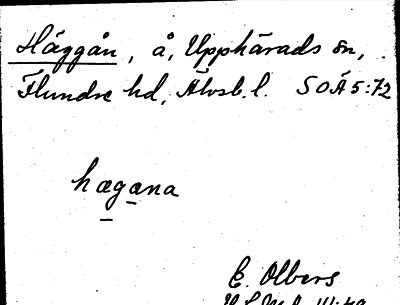 Häggån, å, Upphärads sn,
Flundre hd, Älvsb. l. SOÄ 5:72
hægæna
E. Olbers